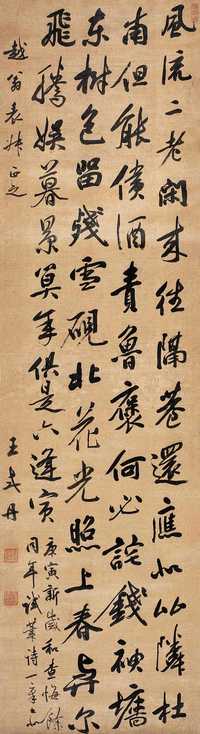 風流二老閑來往隔巷還應似比隣杜
甫但能償酒責魯褒何必詫錢神墻
東樹色留殘雪硯北花光照上春与尔
飛騰娛暮景莫年俱是六逢寅
庚寅新歲和查悔餘
同年試筆詩一章似
越翁正之
王式丹